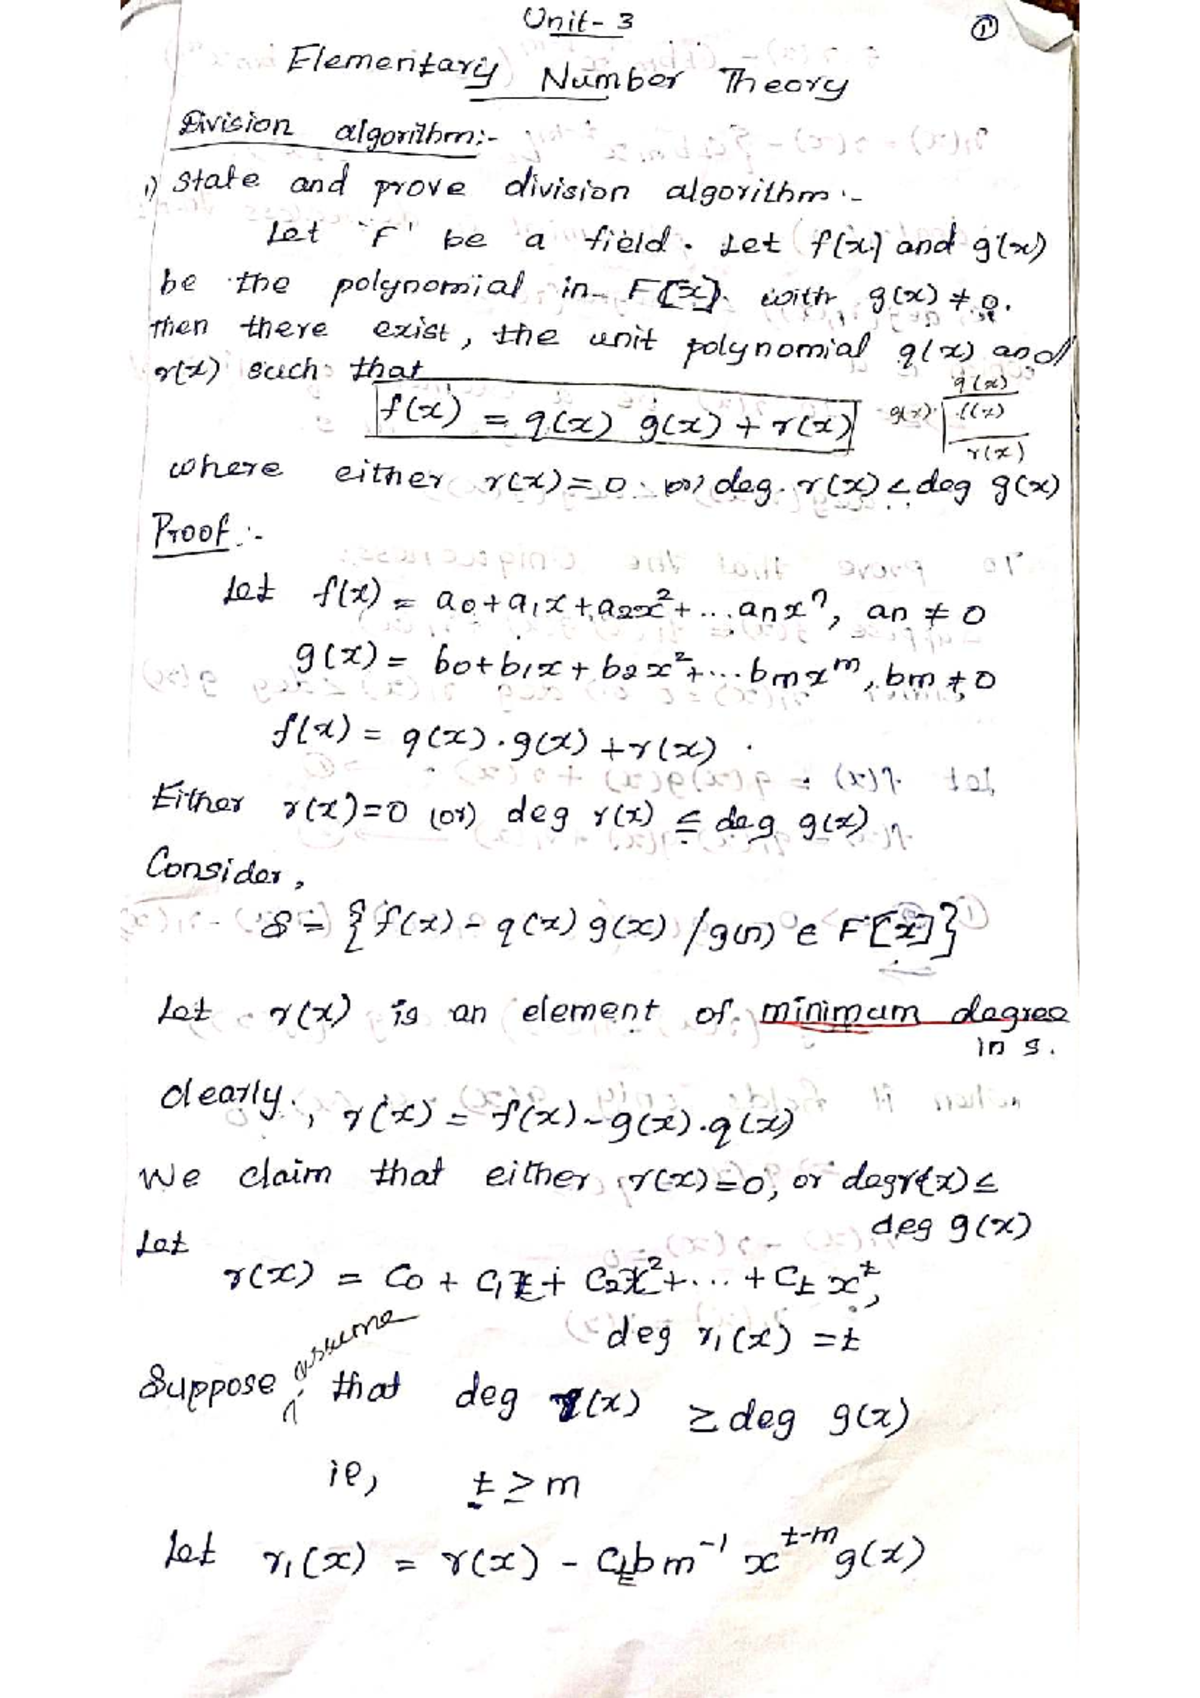 Unit-3
①
Elementary Number Theory
Division algorithm:-
1) State and prove division algorithm:-
Let 'F' be a field. Let f(x) and g(x)
be the polynomial in F[x] with g(x) ≠ 0.
Then there exist, the unit polynomial q(x) and
r(x) such that
f(x) = q(x) g(x) + r(x)
q(x)
g(x) f(x)
r(x)
where either r(x)=0 (or) deg r(x) < deg g(x)
Proof:-
Let f(x) = a0+a1x+a2x²+...anxⁿ, an ≠ 0
g(x) = b0+b1x+b2x²+...bmx^m, bm ≠ 0
f(x) = q(x).g(x)+r(x).
Either r(x)=0 (or) deg r(x) ≤ deg g(x)
Consider,
S = {f(x)-q(x) g(x) /g(n) ∈ F[x]}
Let r(x) is an element of minimum degree
in s.
clearly, r(x) = f(x)-g(x).q(x)
We claim that either r(x)=0, or deg r(x) ≤
deg g(x)
Let
r(x) = C0 + C1x + C2x²+...+Ct x^t,
deg r1(x) = t
Suppose assume that deg r(x) ≥ deg g(x)
ie, t ≥ m
Let r1(x) = r(x) - Ct bm⁻¹ x^t-m g(x)